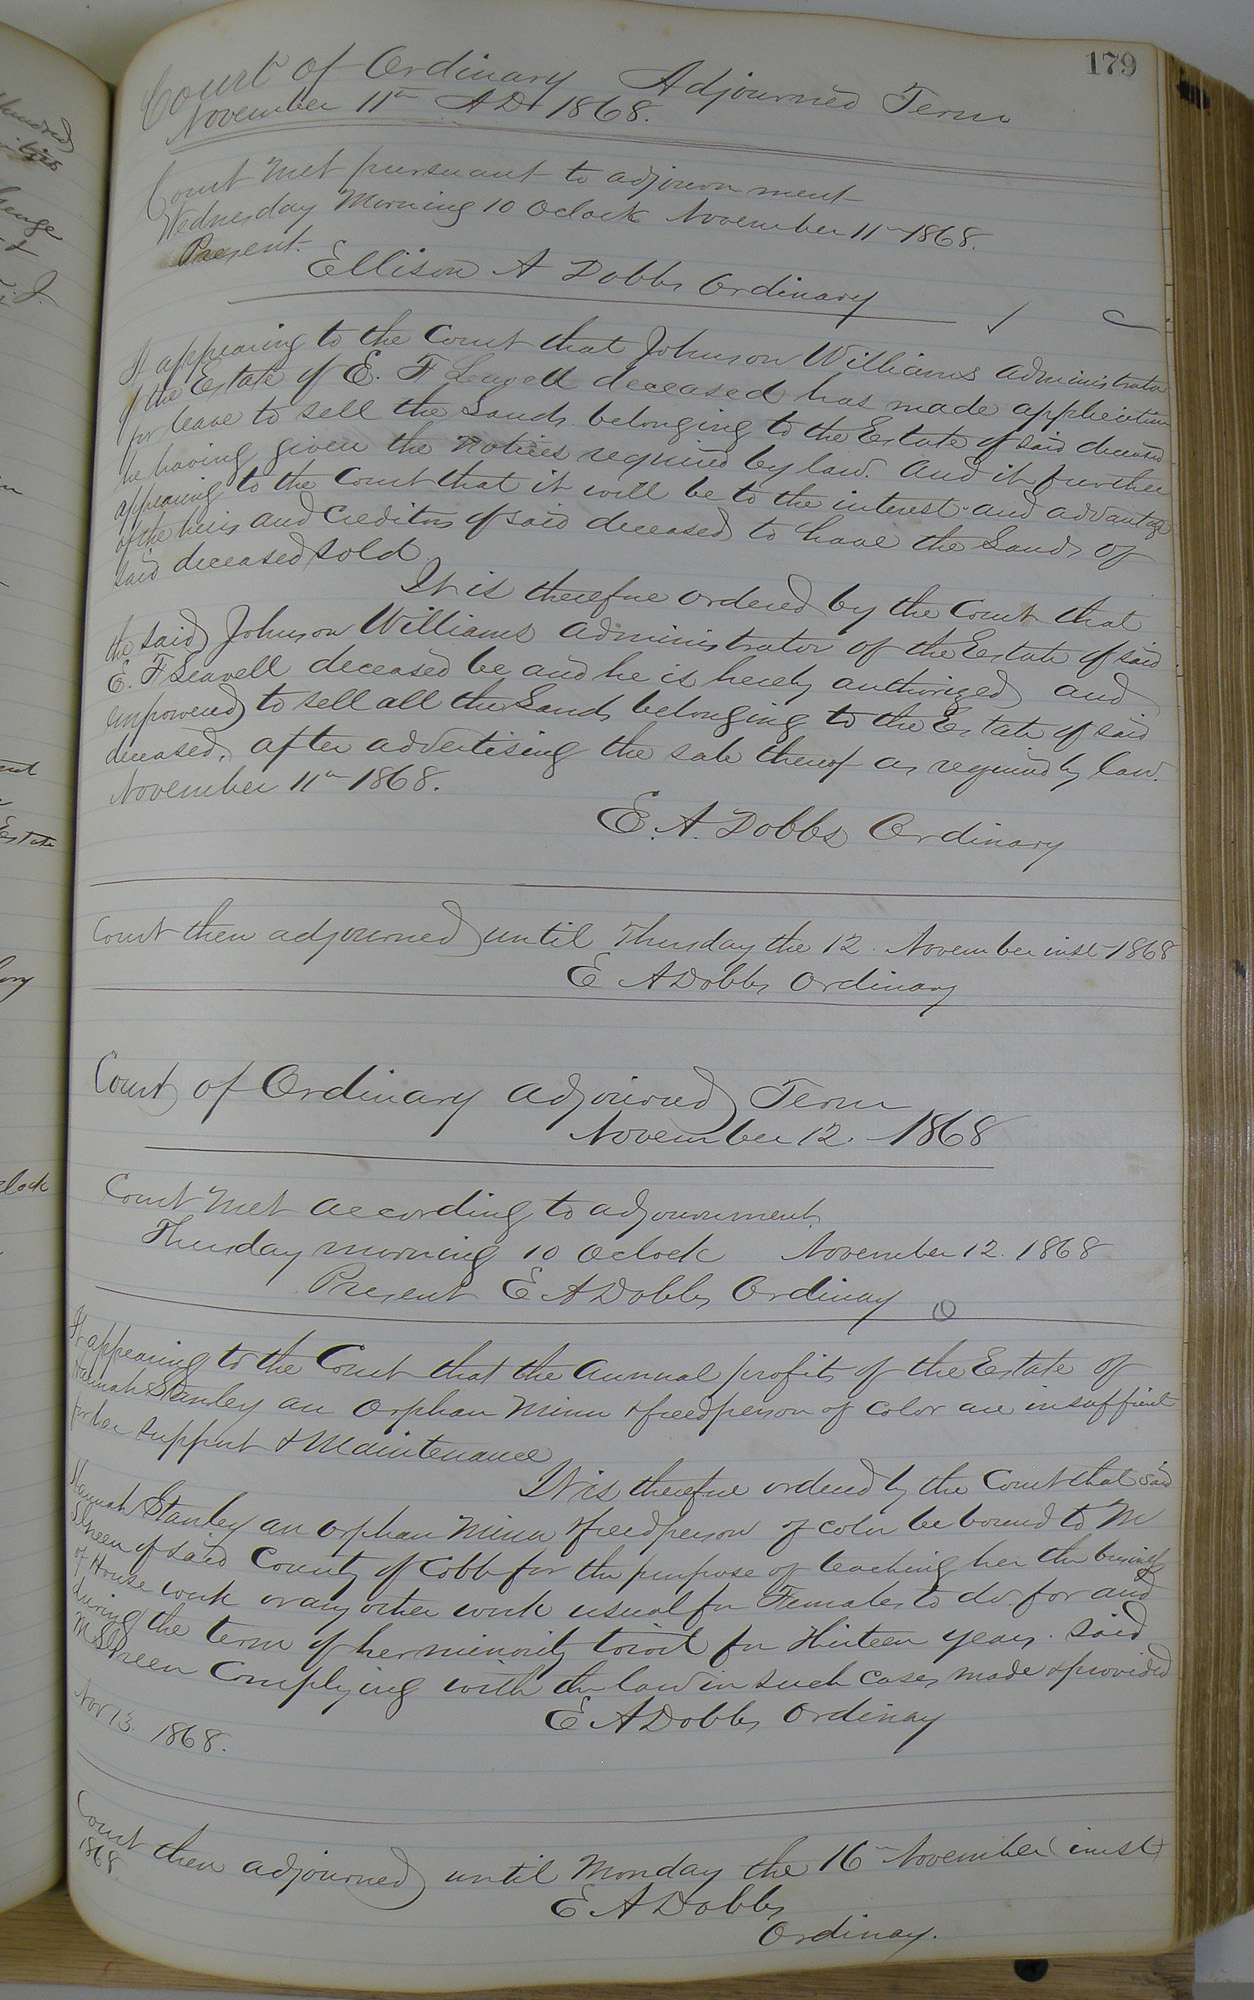 179
Court of Ordinary Adjourned Term
November 11th A.D. 1868.
Court Met pursuant to adjournment
Wednesday Morning 10 Oclock November 11th 1868.
Present.
Ellison A Dobbs Ordinary
It appearing to the Court that Johnson Williams administrator
of the Estate of E. F Leavell deceased has made application
for leave to sell the Lands belonging to the Estate of said deceased
he having given the notices required by law. and it further
appearing to the Court that it will be to the interest and advantage
of the heirs and Creditors of said deceased to have the Lands of
said deceased sold
It is therefore ordered by the Court that
the said Johnson Williams administrator of the Estate of said
E. F Leavell deceased be and he is hereby authorized and
empowered to sell all the Lands belonging to the Estate of said
deceased, after advertising the sale thereof as required by law.
November 11th 1868.
E. A. Dobbs Ordinary
Court then adjourned until Thursday the 12. November inst 1868
E A Dobbs Ordinary
Court of Ordinary adjourned Term
November 12. 1868
Court Met according to adjournment
Thursday morning 10 Oclock November 12. 1868
Present E A Dobbs Ordinary
It appearing to the Court that the annual profits of the Estate of
Hannah Stanley an Orphan Minor & freedperson of color are insufficient
for her support & Maintenance
It is therefore ordered by the Court that said
Hannah Stanley an orphan Minor & freedperson of color be bound to M
S Green of said County of Cobb for the purpose of teaching her the business
of House work or any other work usual for Females to do. for and
during the term of her minority towit for thirteen years. said
M S Green Complying with the law in such cases made & provided
E A Dobbs Ordinary
Nov 13. 1868.
Court then adjourned until Monday the 16th November inst
1868.
E A Dobbs
Ordinary.